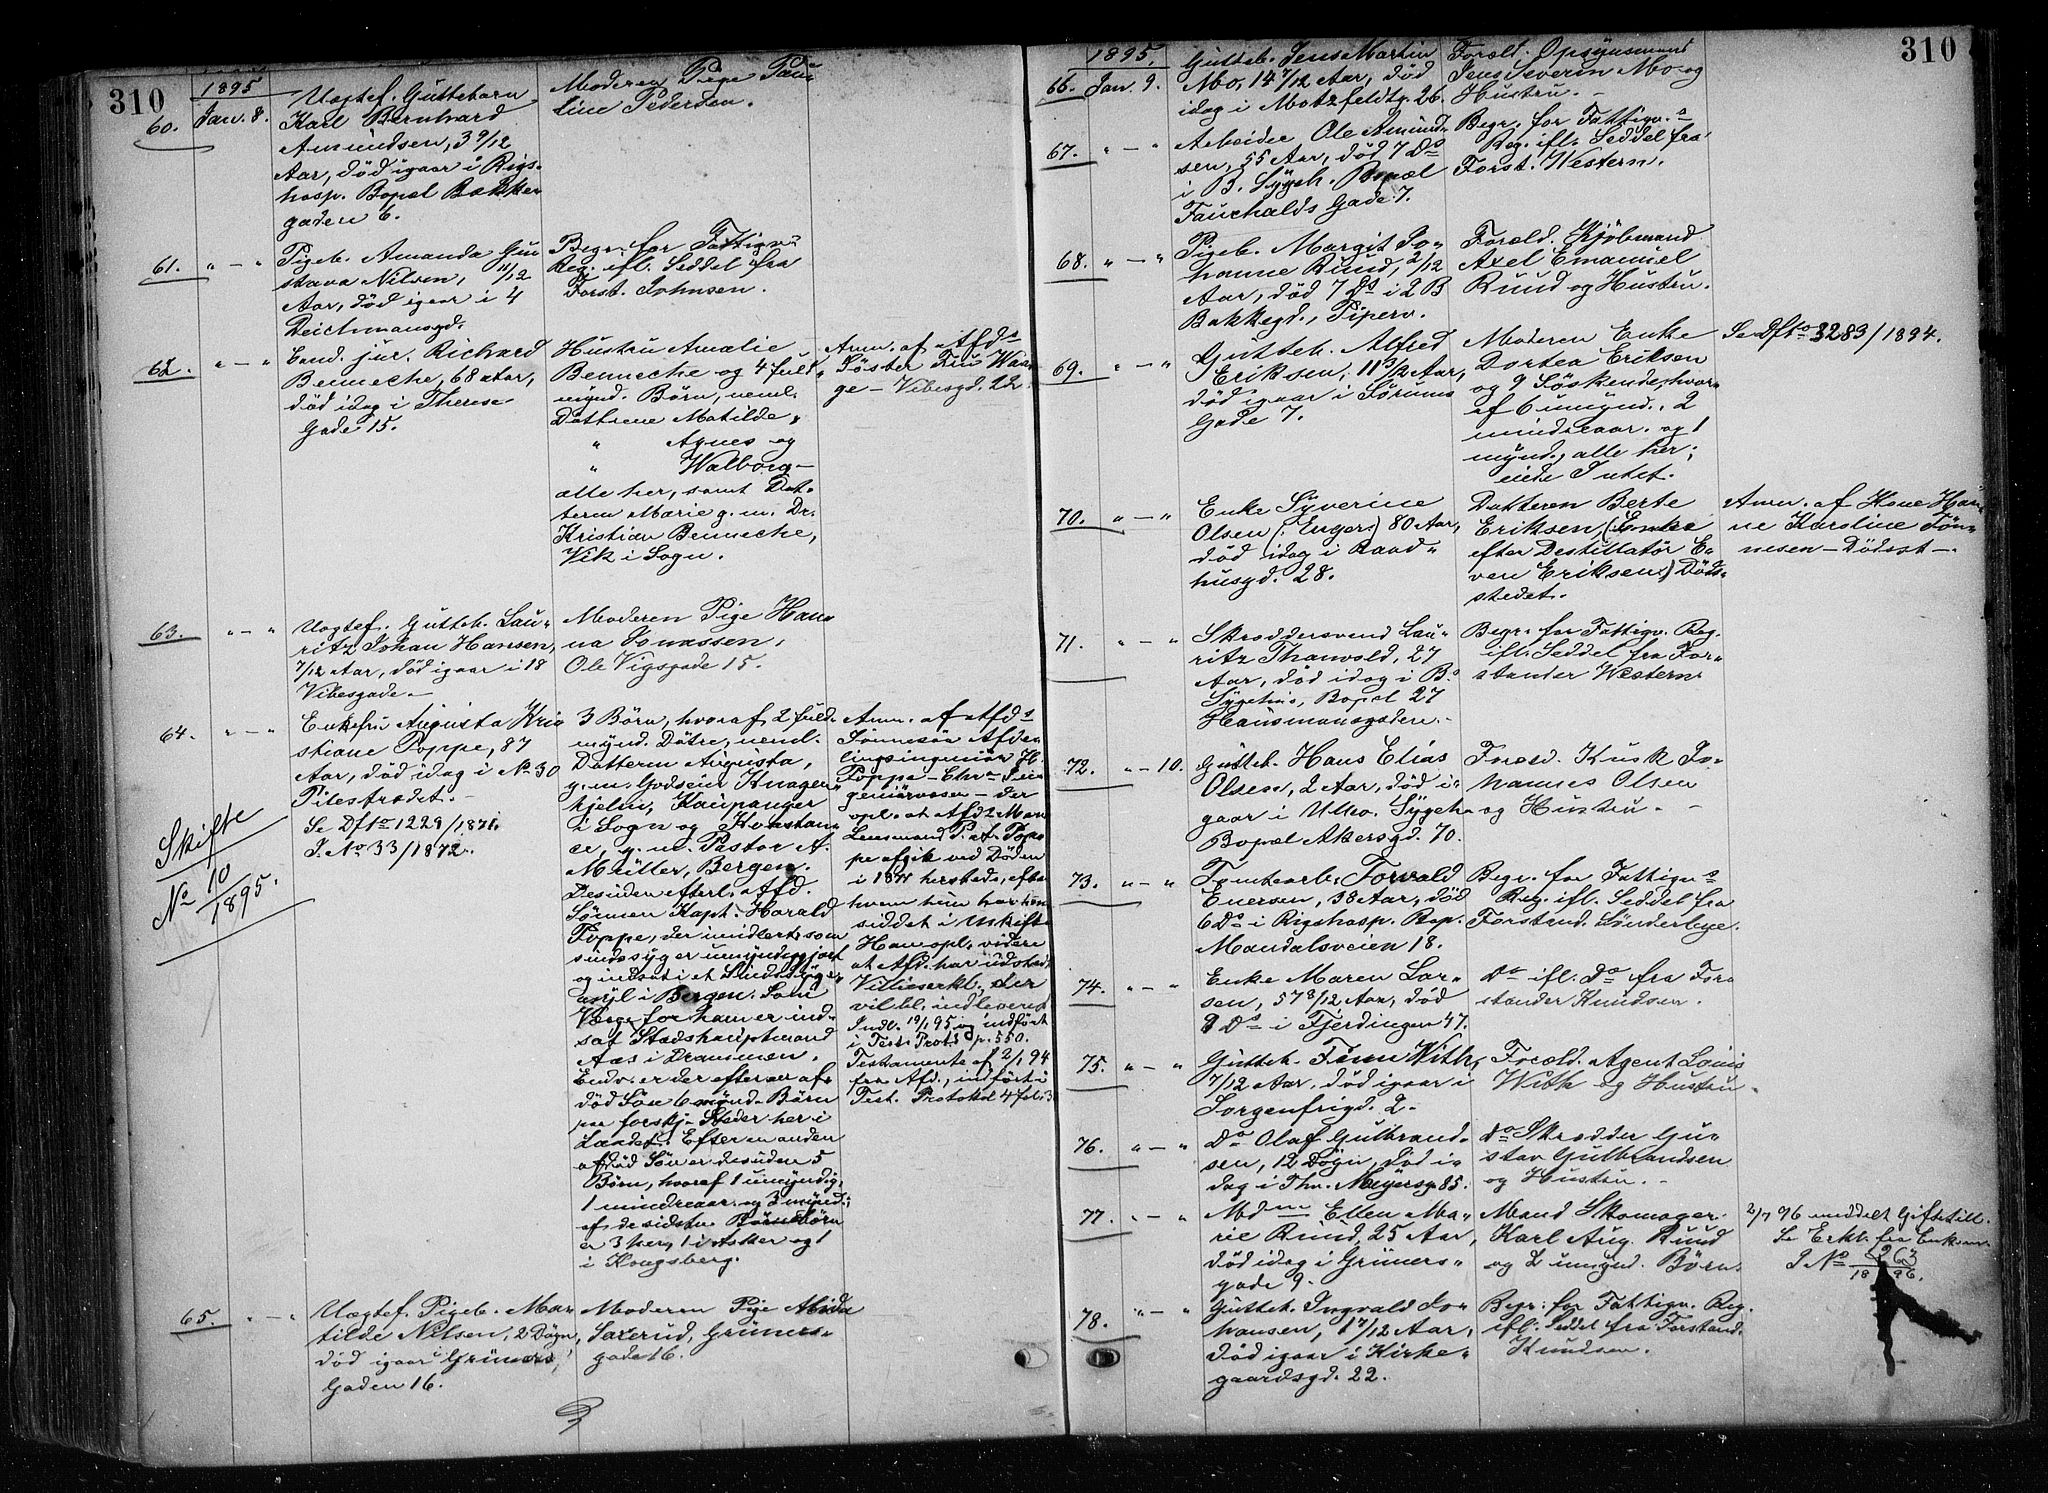 310
1895
60. Jan. 8.
Uægtef. Guttebarn
Karl Bernhard
Amundsen, 3 9/12
Aar, død igaar i Rigs-
hosp. Bopæl Bakke-
gaden 6.
Moderen Pige Pau-
line Pedersen.
61. " — "
Pigeb. Amanda Gu-
stava Nilsen, 11/12
Aar, død igaar i 4
Deichmansgd.
Begr. for Fattigv.s
Reg. ifl. Seddel fra
Forst. Johnsen.
62. " — "
Cand. jur. Richard
Benneche, 68 Aar,
død idag i Therese-
Gade 15.
Hustru Amalie
Benneche og 4 fuld-
mynd. Børn, neml.
Døttrene Matilde,
" Agnes og
" Walborg —
alle her, samt Dat-
teren Marie g. m. Dr.
Kristian Benneche,
Vik i Sogn.
Anm. af Afd.s
Søster Fru Waa-
ge — Vibesgd. 22.
63. " — "
Uægtef. Gutteb. Lau-
ritz Johan Hansen,
7/12 Aar, død igaar i 18
Vibesgade.
Moderen Pige Han-
na Jonassen,
Ole Vigsgade 15.
64. " — "
Enkefru Augusta Kri-
stiane Poppe, 87
Aar, død idag i No 30
Pilestrædet.
Se Dfto 1229/1871.
J. No 33/1872.
Skifte
No 10/1895.
3 Børn, hvoraf 2 fuld-
mynd. Døtre, neml.
Datteren Augusta,
g. m. Godseier Knagen-
hjelm, Kaupanger
i Sogn og Konstan-
ce, g. m. Pastor A.
Müller, Bergen.
Desuden efterl. Afd.
Sønnen Kapt. Harald
Poppe, der imidlert. som
sindssyg er umyndiggjort
og indsat i et Sindssyge-
asyl i Bergen. Som
Værge for ham er ind-
sat Stadshauptmand
Aas i Drammen.
Endv. er der efter en af-
død Søn 6 mynd. Børn
paa forskj. Steder her i
Landet. Efter en anden
afdød Søn er desuden 5
Børn, hvoraf 1 umyndig,
1 mindreaar. og 3 mynd.;
af de sidstn. Børnebørn
er 3 her, 1 i Asker og 1
i Kongsberg.
Anm. af Afd.s
Sønnesøn Afde-
lingsingeniør H.
Poppe — — der
opl. at Afd.s Mand
Lensmand P. A. Pop-
pe afgik ved Døden
i 1871 hersteds, efter
hvem hun har hen-
siddet i Uskifte.
Han opl. videre
at Afd. har udstedt
Villieserkl., der
vil bl. indleveret.
Indl. 19/1 95 og indført
i Test. Prot. 3 p. 550.
Testamente af 2/1 94
fra Afd., indført i
Test. Protokol 4 fol. 3
65. " — "
Uægtef. Pigeb. Ma-
tilde Nilsen, 2 Døgn,
død igaar i Grüners
Gaden 16.
Moderen Pige Alvida
Saxerud, Grüners-
gade 16.
310
1895.
66. Jan. 9.
Gutteb. Jens Martin
Mo, 14 7/12 Aar, død
idag i Motzfeldtg. 26.
Foræld. Opsynsmand
Jens Severin Mo og
Hustru.
67. " — "
Arbeider Ole Amund-
sen, 55 Aar, død 7 Ds
i B. Sygeh. Bopæl
Fauchalds Gade 7.
Begr. for Fattigv.s
Reg. ifl. Seddel fra
Forst. Western.
68. " — "
Pigeb. Margit Jo-
hanne Ruud, 2/12
Aar, død 7 Ds i 2 B
Bakkegd., Piperv.
Foræld. Kjøbmand
Axel Emanuel
Ruud og Hustru.
69. " — "
Gutteb. Alfred
Eriksen, 11 3/12 Aar,
død igaar i Sørums
Gade 7.
Moderen Enke
Dortea Eriksen
og 9 Søskende, hvor-
af 6 umynd., 2
mindreaar. og 1
mynd., alle her;
eiede Intet.
Se Dfto 3283/1894.
70. " — "
Enke Syverine
Olsen (Enger) 80 Aar,
død idag i Raad-
husgd. 28.
Datteren Berte
Eriksen, (Enke
efter Destillatør E-
ven Eriksen) Døds-
stedet.
Anm. af Kone Han-
ne Karoline Tøn-
nesen — Dødsst —.
71. " — "
Skræddersvend Lau-
ritz Thanvold, 27
Aar, død idag i B.s
Sygehus, Bopæl 27
Hausmansgaden.
Begr. for Fattigv. Reg.
ifl. Seddel fra For-
stander Western.
72. " — 10.
Gutteb. Hans Elias
Olsen, 2 Aar, død i-
gaar i Ullev. Sygeh.
Bopæl Akersgd. 70.
Foræld. Kusk Jo-
hannes Olsen
og Hustru.
73. " — "
Tomtearb. Torvald
Enersen, 38 Aar, død
6 Ds i Rigshosp. Bop.
Mandalsveien 18.
Begr. for Fattigv.s
Reg. ifl. Seddel fra
Forstand. Sønderbye.
74. " — "
Enke Maren Lar-
sen, 57 8/12 Aar, død
9 Ds i Fjerdingen 47.
Do ifl. Do fra For-
stander Knudsen.
75. " — "
Gutteb. Finn With,
7/12 Aar, død igaar i
Sorgenfrigd. 2.
Foræld. Agent Louis
With og Hustru.
76. " — "
Do Olaf Gulbrand-
sen, 12 Døgn, død i-
dag i Thv. Meyersg. 85.
do Skrædder Gu-
stav Gulbrandsen
og Hustru.
77. " — "
Mdme Ellen Ma-
rie Ruud, 25 Aar,
død idag i Grüners-
gade 9.
Mand Skomager
Karl Aug. Ruud
og 2 umynd. Børn.
2/7 96 meddelt Giftetill.
Se Erkl. fra Enkem.
J No 263/1896.
78. " — "
Gutteb. Ingvald Jo-
hansen, 1 7/12 Aar,
død igaar i Kirke-
gaardsgd. 22.
Begr. for Fattigv. Reg.
ifl. Seddel fra Forstand.
Knudsen.